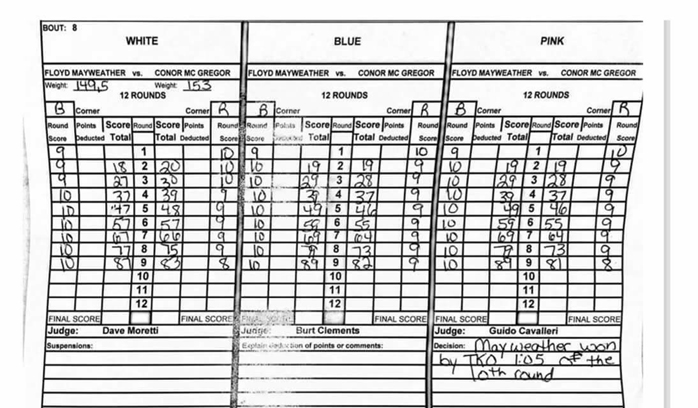 BOUT: 8
WHITE BLUE PINK
FLOYD MAYWEATHER vs. CONOR MC GREGOR FLOYD MAYWEATHER vs. CONOR MC GREGOR FLOYD MAYWEATHER vs. CONOR MC GREGOR
Weight: 149.5 Weight: 153
12 ROUNDS 12 ROUNDS 12 ROUNDS
B Corner Corner R B Corner Corner R B Corner Corner R
Round Points Score Round Score Points Round Round Points Score Round Score Points Round Round Points Score Round Score Points Round
Score Deducted Total Total Deducted Score Score Deducted Total Total Deducted Score Score Deducted Total Total Deducted Score
9 1 10 9 1 10 9 1 10
9 18 2 20 10 10 19 2 19 9 10 19 2 19 9
9 27 3 30 10 10 29 3 28 9 10 29 3 28 9
10 37 4 39 9 10 39 4 37 9 10 39 4 37 9
10 47 5 48 9 10 49 5 46 9 10 49 5 46 9
10 57 6 57 9 10 59 6 55 9 10 59 6 55 9
10 67 7 66 9 10 69 7 64 9 10 69 7 64 9
10 77 8 75 9 10 79 8 73 9 10 79 8 73 9
10 87 9 83 8 10 89 9 82 9 10 89 9 81 8
10 10 10
11 11 11
12 12 12
FINAL SCORE FINAL SCORE FINAL SCORE FINAL SCORE FINAL SCORE FINAL SCORE
Judge: Dave Moretti Judge: Burt Clements Judge: Guido Cavalleri
Suspensions: Explain deduction of points or comments: Decision: Mayweather won
by TKO 1:05 of the
10th round